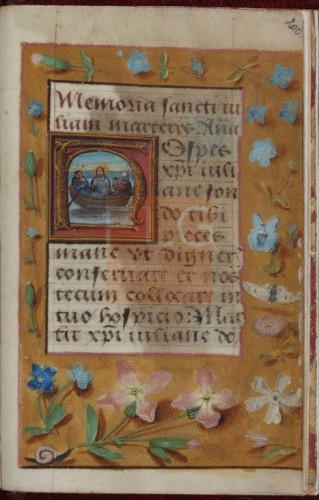 Memoria sancti iu
liani martiris. Ana
Ospes
xpi iuli
ane fon
do tibi
preces
mane vt digneris
conseruare et nos
tecum collocari in
tuo hospicio. Mar
tir xpi iuliane do